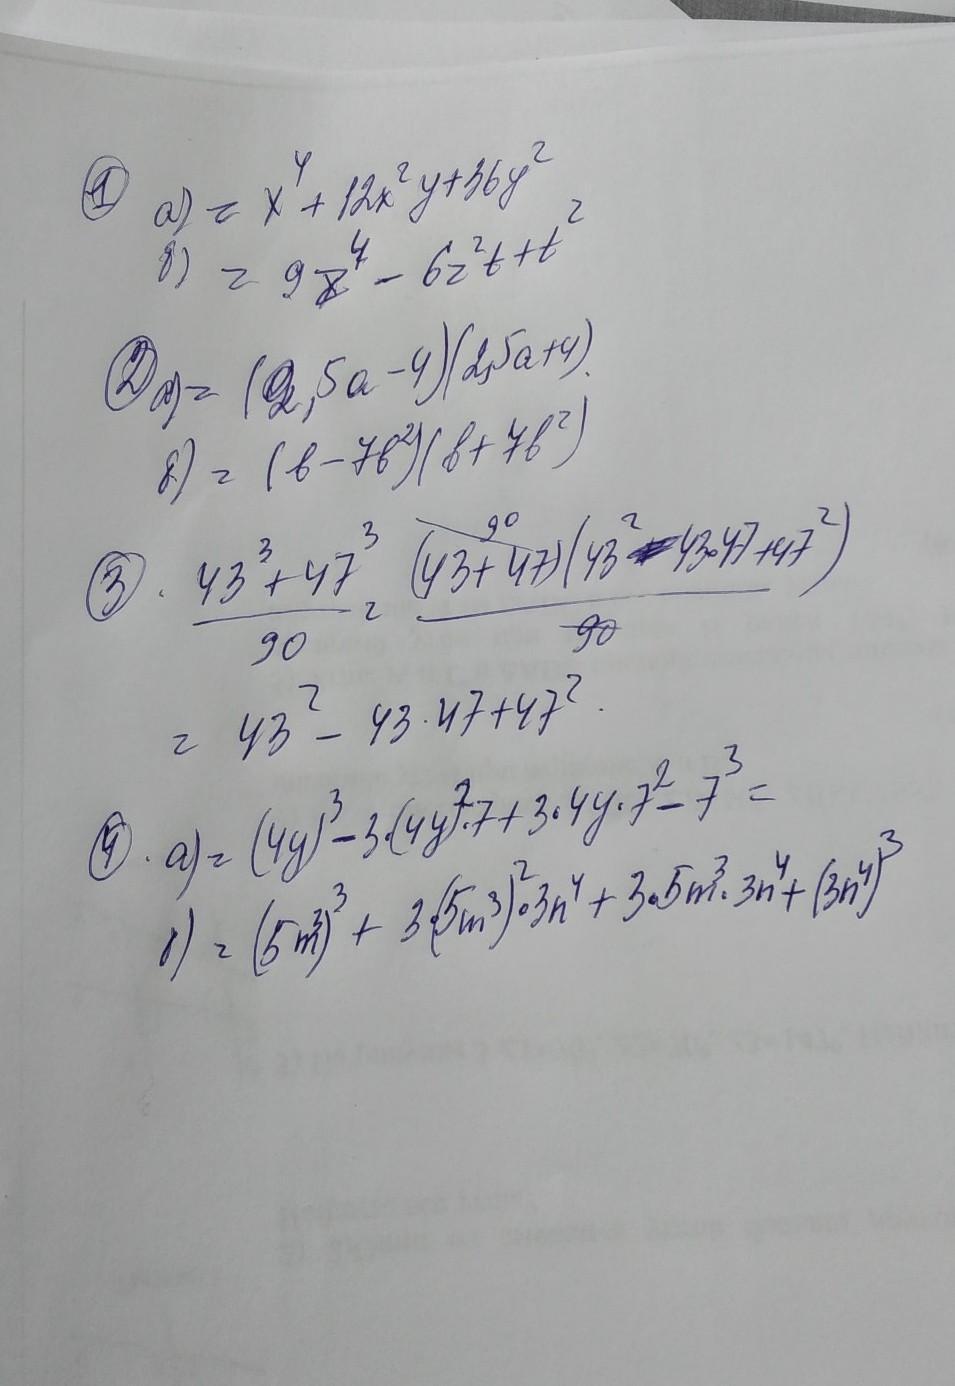 ① а) = x⁴ + 12x²y + 36y²
б) = 9z⁴ - 6z²t + t²
② а) = (2,5a - 4)(2,5a + 4).
б) = (b - 7b²)(b + 7b²)
90
③. 43³ + 47³ / 90 = (43 + 47)(43² - 43·47 + 47²) / 90
= 43² - 43·47 + 47².
④. а) = (4y)³ - 3·(4y)²·7 + 3·4y·7² - 7³ =
б) = (5m³)³ + 3·(5m³)²·3n⁴ + 3·5m³·3n⁴ + (3n⁴)³